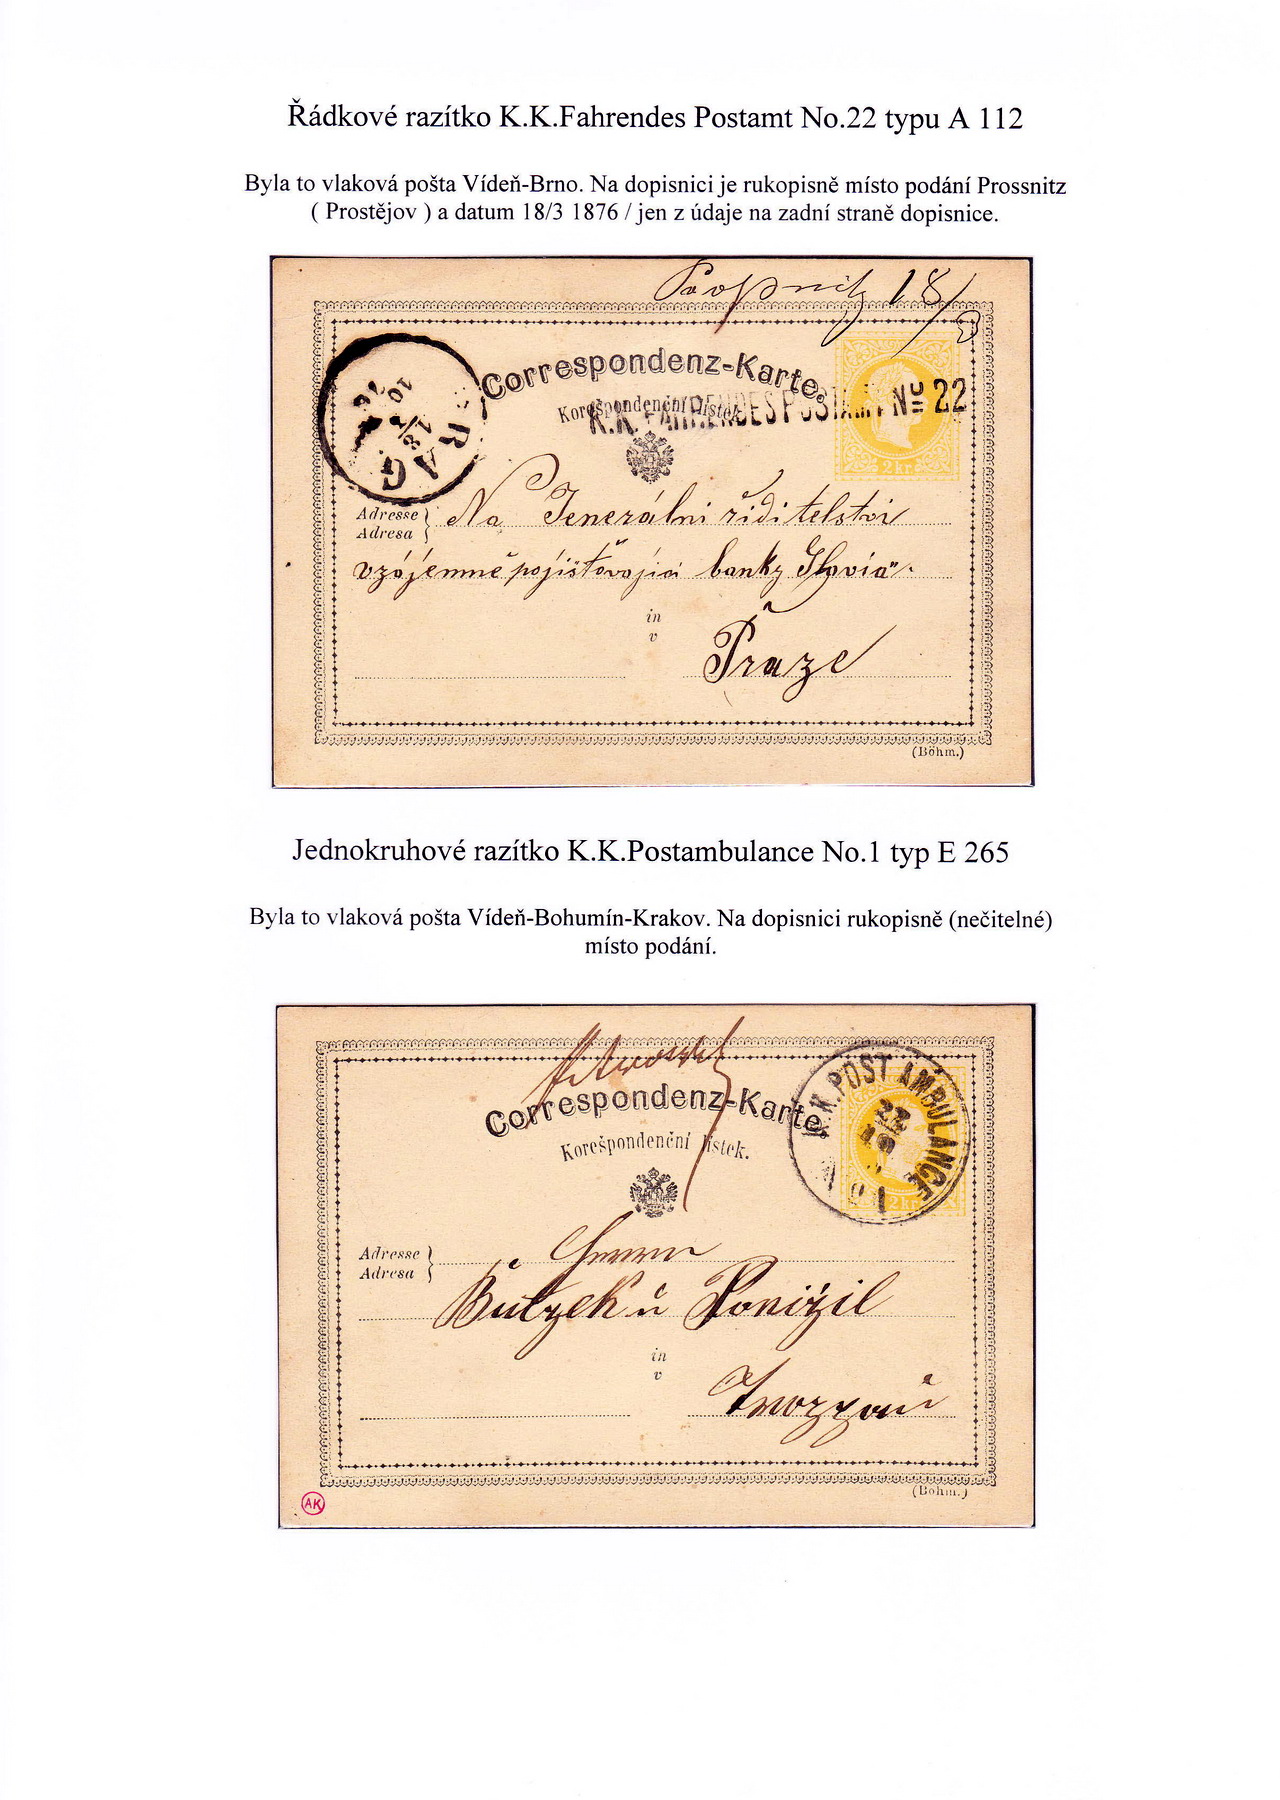 Řádkové razítko K.K.Fahrendes Postamt No.22 typu A 112
Byla to vlaková pošta Vídeň-Brno. Na dopisnici je rukopisně místo podání Prossnitz
( Prostějov ) a datum 18/3 1876 / jen z údaje na zadní straně dopisnice.
Proßnitz 18/3
Correspondenz-Karte.
Korešpondenční lístek.
K.K. FAHRENDES POSTAMT No 22
PRAG
2 kr.
Adresse
Adresa
Na Jenerálni řiditelstvi
vzájemně pojišťovajici banky Slavia".
in
v
Praze
(Böhm.)
Jednokruhové razítko K.K.Postambulance No.1 typ E 265
Byla to vlaková pošta Vídeň-Bohumín-Krakov. Na dopisnici rukopisně (nečitelné)
místo podání.
Correspondenz-Karte.
Korešpondenční lístek.
K.K. POST AMBULANCE
2 kr.
Adresse
Adresa
Herrn
in
v
Troppau
(Böhm.)
AK